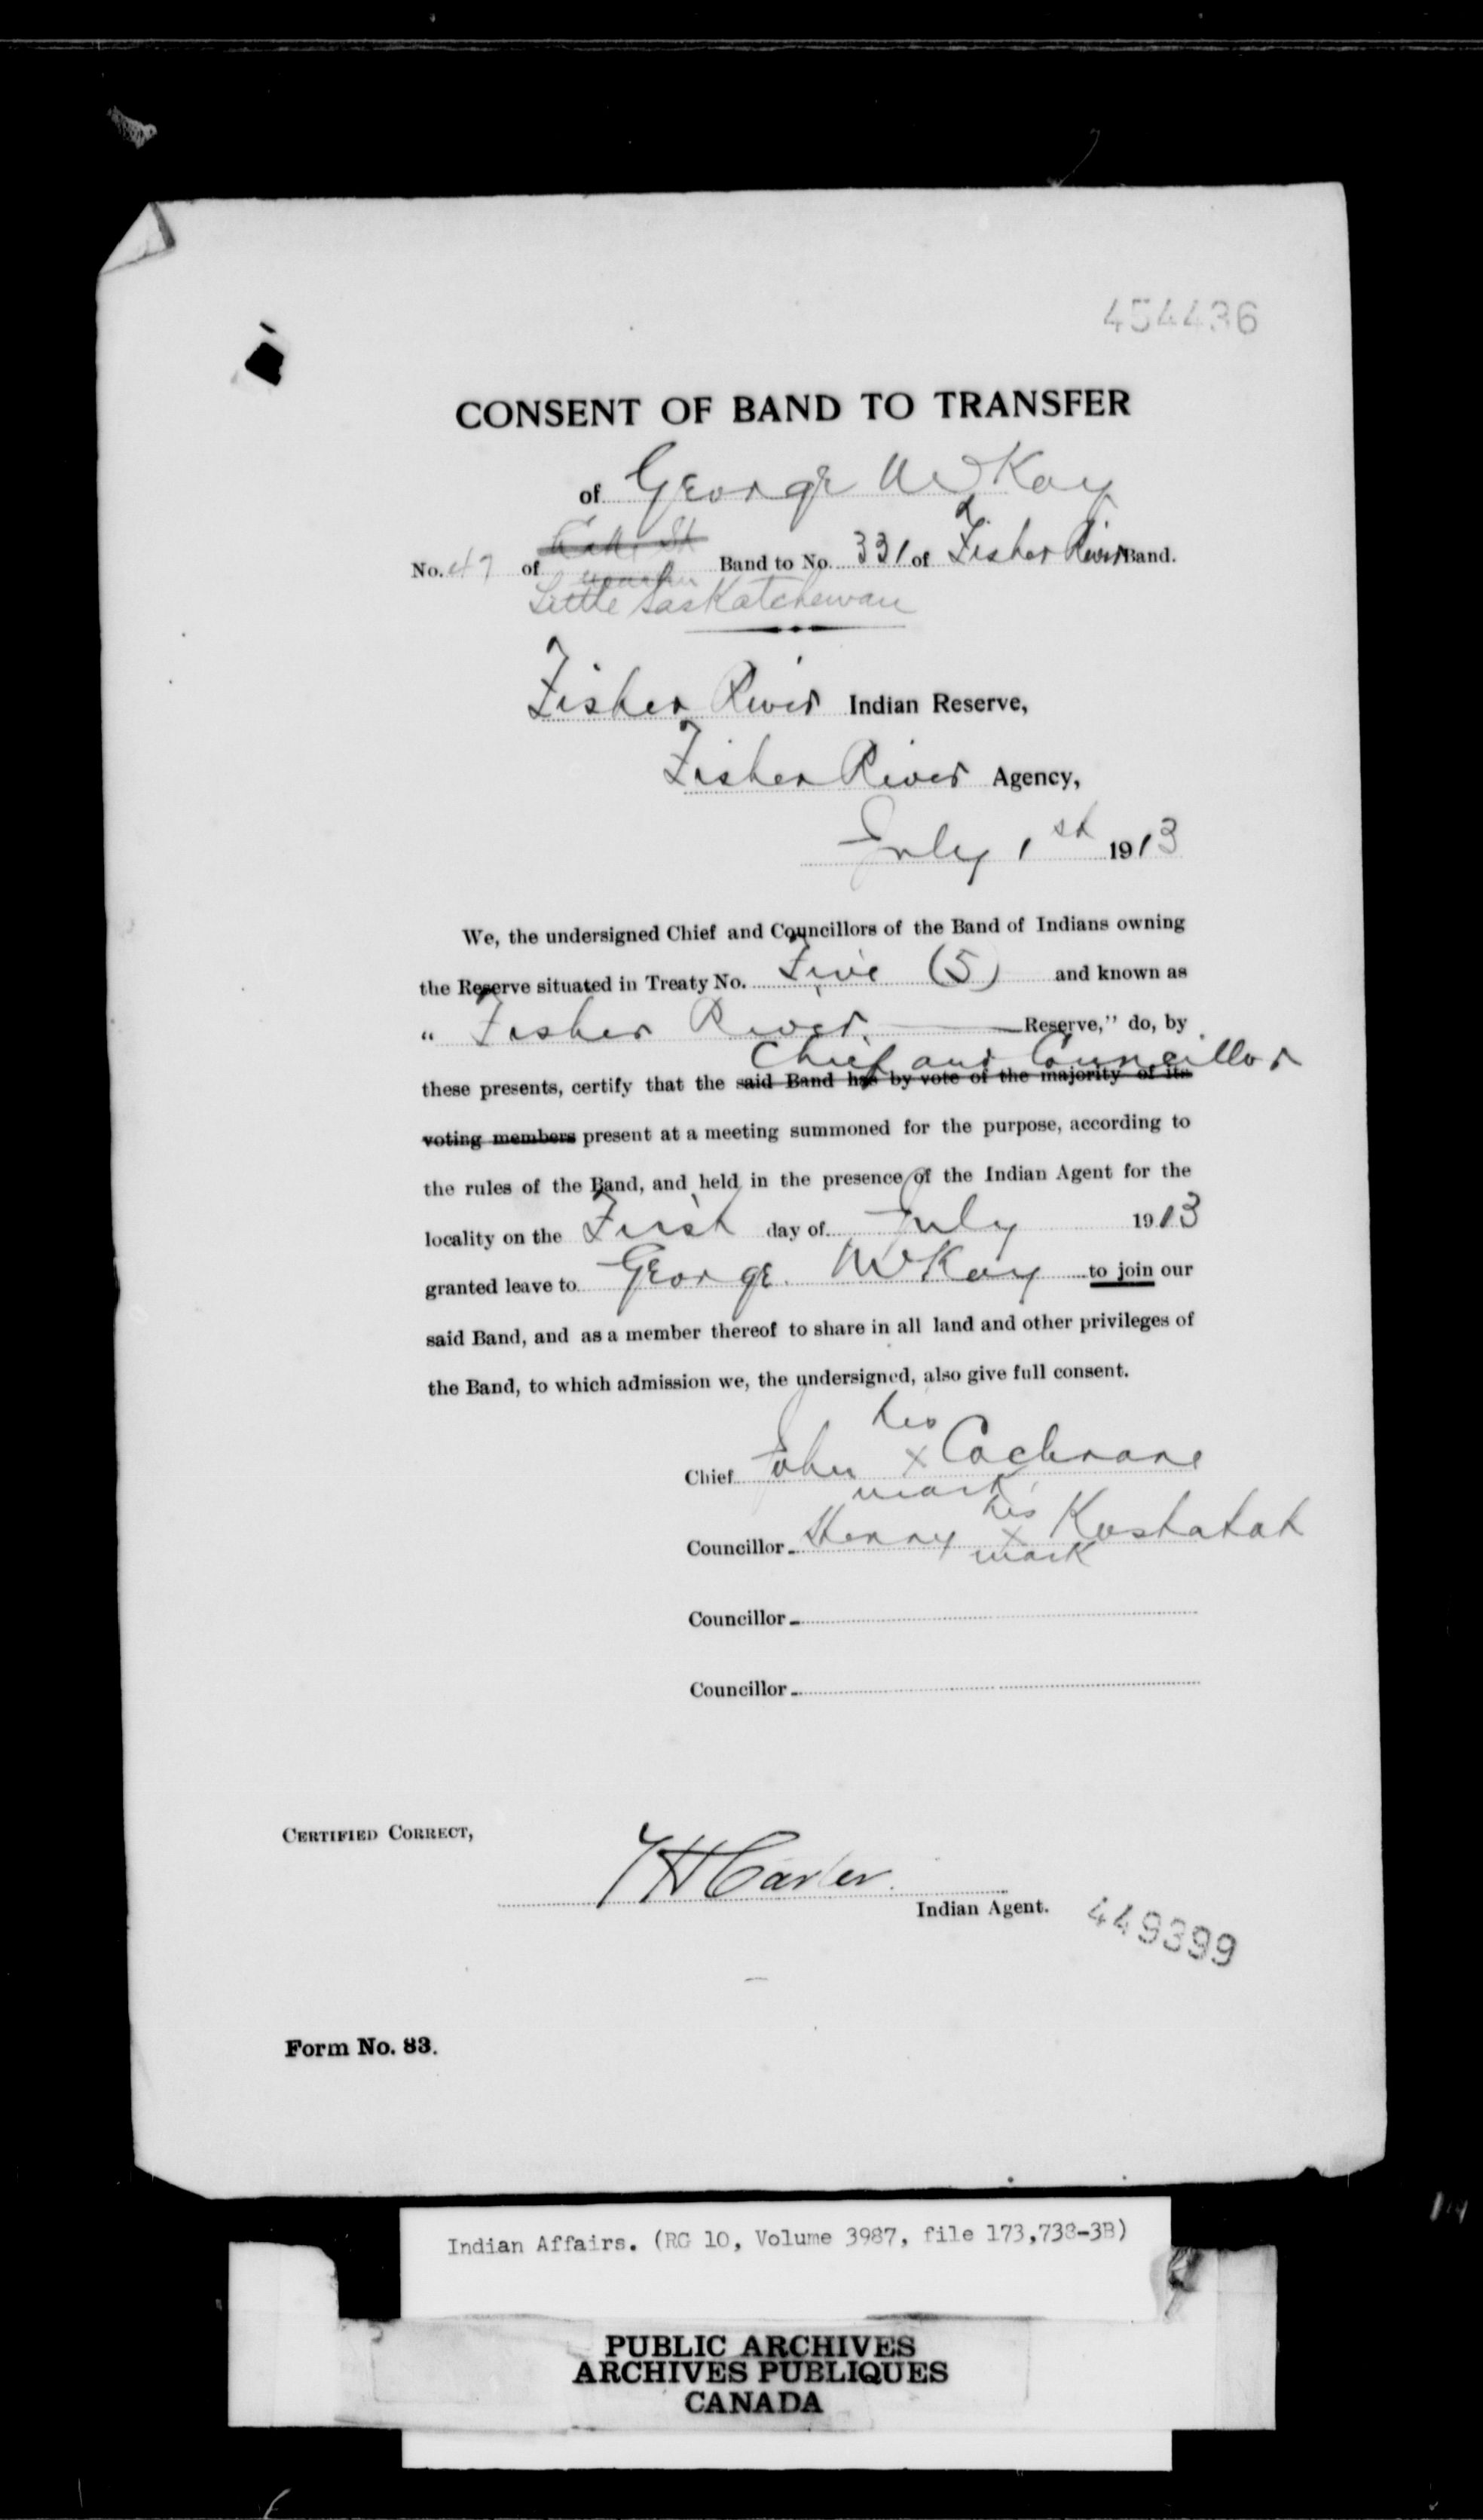 454436
CONSENT OF BAND TO TRANSFER
of George McKay
No. 47 of Band to No. 331 of Fisher River Band.
Little Saskatchewan
Fisher River Indian Reserve,
Fisher River Agency,
July 1st 1913
We, the undersigned Chief and Councillors of the Band of Indians owning
the Reserve situated in Treaty No. Five (5) and known as
" Fisher River Reserve," do, by
Chief and Councillor
these presents, certify that the said Band has by vote of the majority of its
voting members present at a meeting summoned for the purpose, according to
the rules of the Band, and held in the presence of the Indian Agent for the
locality on the First day of July 1913
granted leave to George McKay to join our
said Band, and as a member thereof to share in all land and other privileges of
the Band, to which admission we, the undersigned, also give full consent.
his
Chief John x Cochrane
mark
his
Councillor Henry x Kostatak
mark
Councillor
Councillor
CERTIFIED CORRECT,
TH Carter
Indian Agent.
449399
Form No. 83.
Indian Affairs. (RG 10, Volume 3987, file 173,738-3B)
PUBLIC ARCHIVES
ARCHIVES PUBLIQUES
CANADA